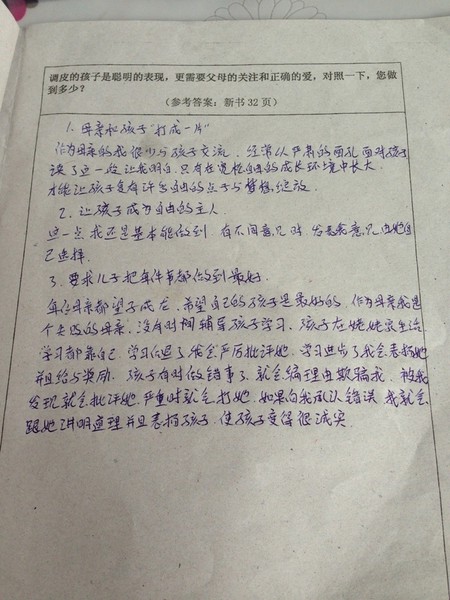 调皮的孩子是聪明的表现，更需要父母的关注和正确的爱，对照一下，您做
到多少？
（参考答案：新书32页）
1. 母亲和孩子“打成一片”
作为母亲的我很少与孩子交流，经常以严肃的面孔面对孩子
读了这一段让我明白，只有在宽松自由的成长环境中长大
才能让孩子会有许多自由的点子与梦想绽放.
2. 让孩子成为自由的主人
这一点我还是基本能做到 有不同意见时 发表我意见由她自
己选择.
3. 要求儿子把每件事都做到最好.
每位母亲都望子成龙，希望自己的孩子是最好的，作为母亲我是
个失败的母亲，没有时间辅导孩子学习，孩子在姥姥家生活
学习都靠自己，学习后退了我会严厉批评她，学习进步了我会表扬她
并且给与奖励，孩子有时做错事了，就会编理由欺骗我，被我
发现就会批评她，严重时就会打她，如果向我承认错误，我就会
跟她讲明道理并且表扬孩子，使孩子变得很诚实.